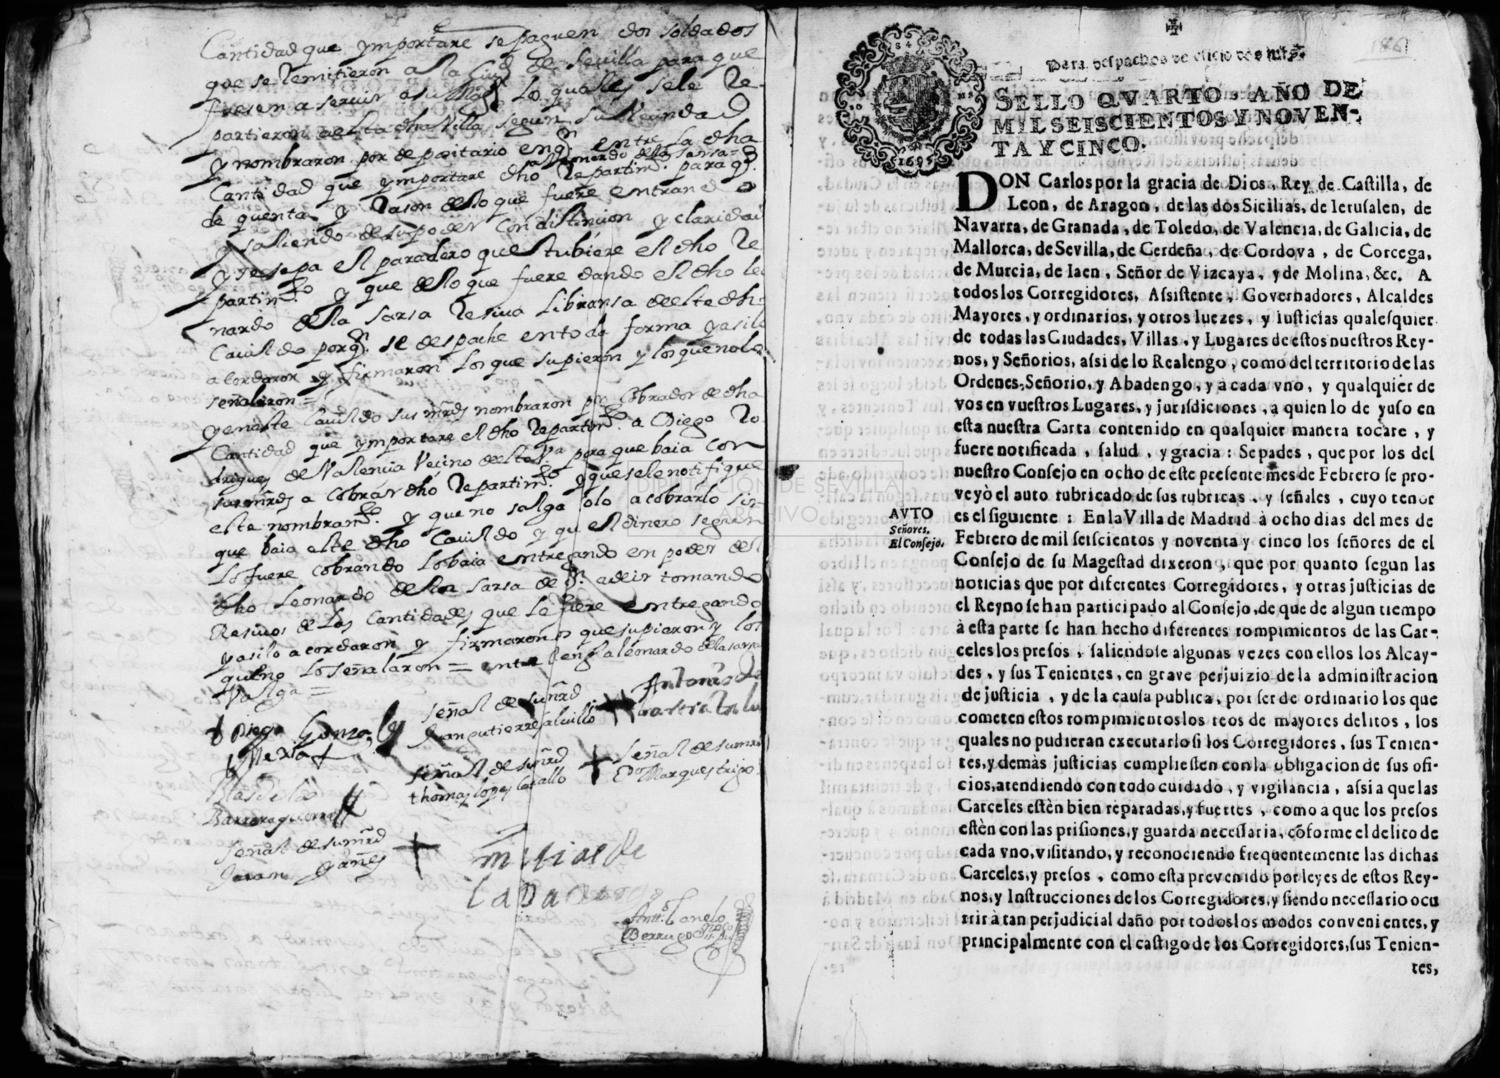 Cantidad que ymportare se paguen dos soldados
que se Remitieron a la Ciud de Sevilla para que
fuesen a servir a su Mgd lo qualles se le Re-
partieron a esta dha Villa segun su Vecindad
y nombraron por depositario en qn entre la dha
Leonardo de la Sarsa
Cantidad que ymportare dho Repartimto para q
de quenta y Rason de lo que fuere entrando
y saliendo de su poder Con distincion y claridad
y se sepa el paradero que tubiere el dho Re
partimto y que de lo que fuere dando el dho leo
nardo de la Sarsa Resiva libransa de este dho
Cavildo porq se despache en toda forma y asi lo
acordaron y firmaron los que supieron y los que no lo
señalaron =
y en este Cavildo sus mrds nombraron por Cobrador de dha
Cantidad que ymportare el dho Repartimto a Diego Ro
drigues de Valencia Vecino de esta Va para que baia con
a cobrar dho Repartimto y que se le notifique
este nombramto y que no salga solo a cobrarlo sin
que baia este dho Cavildo y qu el dinero segun
lo fuere cobrando lo baia entregando en poder del
dho Leonardo de la Sarsa tomando
Resivos de las Cantidades que le fuere entregando
y asi lo acordaron y firmaron los que supieron y los
que no lo señalaron = entre Rengs leonardo de la sarsa
Valga =
Diego Gonzales
señal de su mrd
Juan gutierres alvillo
Antonio de
señal de su mrd
thomas lopes Cavallo
señal de su mrd
Marques trigo
Blas de
Barrera
señal de su mrd
Juan yañes
matias de
la
Antto Canelo
Berrugo
Para despachos de oficio dos mrs
SELLO QVARTO, AÑO DE
MIL SEISCIENTOS Y NOVEN-
TA Y CINCO.
1695
DON Carlos por la gracia de Dios, Rey de Castilla, de
Leon, de Aragon, de las dos Sicilias, de Ierusalen, de
Navarra, de Granada, de Toledo, de Valencia, de Galicia, de
Mallorca, de Sevilla, de Cerdeña, de Cordova, de Corcega,
de Murcia, de Iaen, Señor de Vizcaya, y de Molina, &c. A
todos los Corregidores, Assistente, Governadores, Alcaldes
Mayores, y ordinarios, y otros Iuezes, y Iusticias qualesquier
de todas las Ciudades, Villas, y Lugares de estos nuestros Rey-
nos, y Señorios, assi de lo Realengo, como del territorio de las
Ordenes, Señorio, y Abadengo, y à cada vno, y qualquier de
vos en vuestros Lugares, y jurisdiciones, a quien lo de yuso en
esta nuestra Carta contenido en qualquier manera tocare, y
fuere notificada, salud, y gracia: Sepades, que por los del
nuestro Consejo en ocho de este presente mes de Febrero se pro-
veyò el auto rubricado de sus rubricas, y señales, cuyo tenor
es el siguiente: En la Villa de Madrid à ocho dias del mes de
AVTO
Señores.
El Consejo.
Febrero de mil seiscientos y noventa y cinco los señores de el
Consejo de su Magestad dixeron, que por quanto segun las
noticias que por diferentes Corregidores, y otras justicias de
el Reyno se han participado al Consejo, de que de algun tiempo
à esta parte se han hecho diferentes rompimientos de las Car-
celes los presos, saliendose algunas vezes con ellos los Alcay-
des, y sus Tenientes, en grave perjuizio de la administracion
de justicia, y de la causa publica, por ser de ordinario los que
cometen estos rompimientos los reos de mayores delitos, los
quales no pudieran executarlo si los Corregidores, sus Tenien-
tes, y demàs justicias cumpliessen con la obligacion de sus ofi-
cios, atendiendo con todo cuidado, y vigilancia, assi a que las
Carceles estèn bien reparadas, y fuertes, como a que los presos
estèn con las prisiones, y guarda necessaria, cõforme el delito de
cada vno, visitando, y reconociendo frequentemente las dichas
Carceles, y presos, como esta prevenido por leyes de estos Rey-
nos, y Instrucciones de los Corregidores, y siendo necessario ocu
rrir à tan perjudicial daño por todos los modos convenientes, y
principalmente con el castigo de los Corregidores, sus Tenien-
tes,
DIPUTACIÓN DE SEVILLA
ARCHIVO